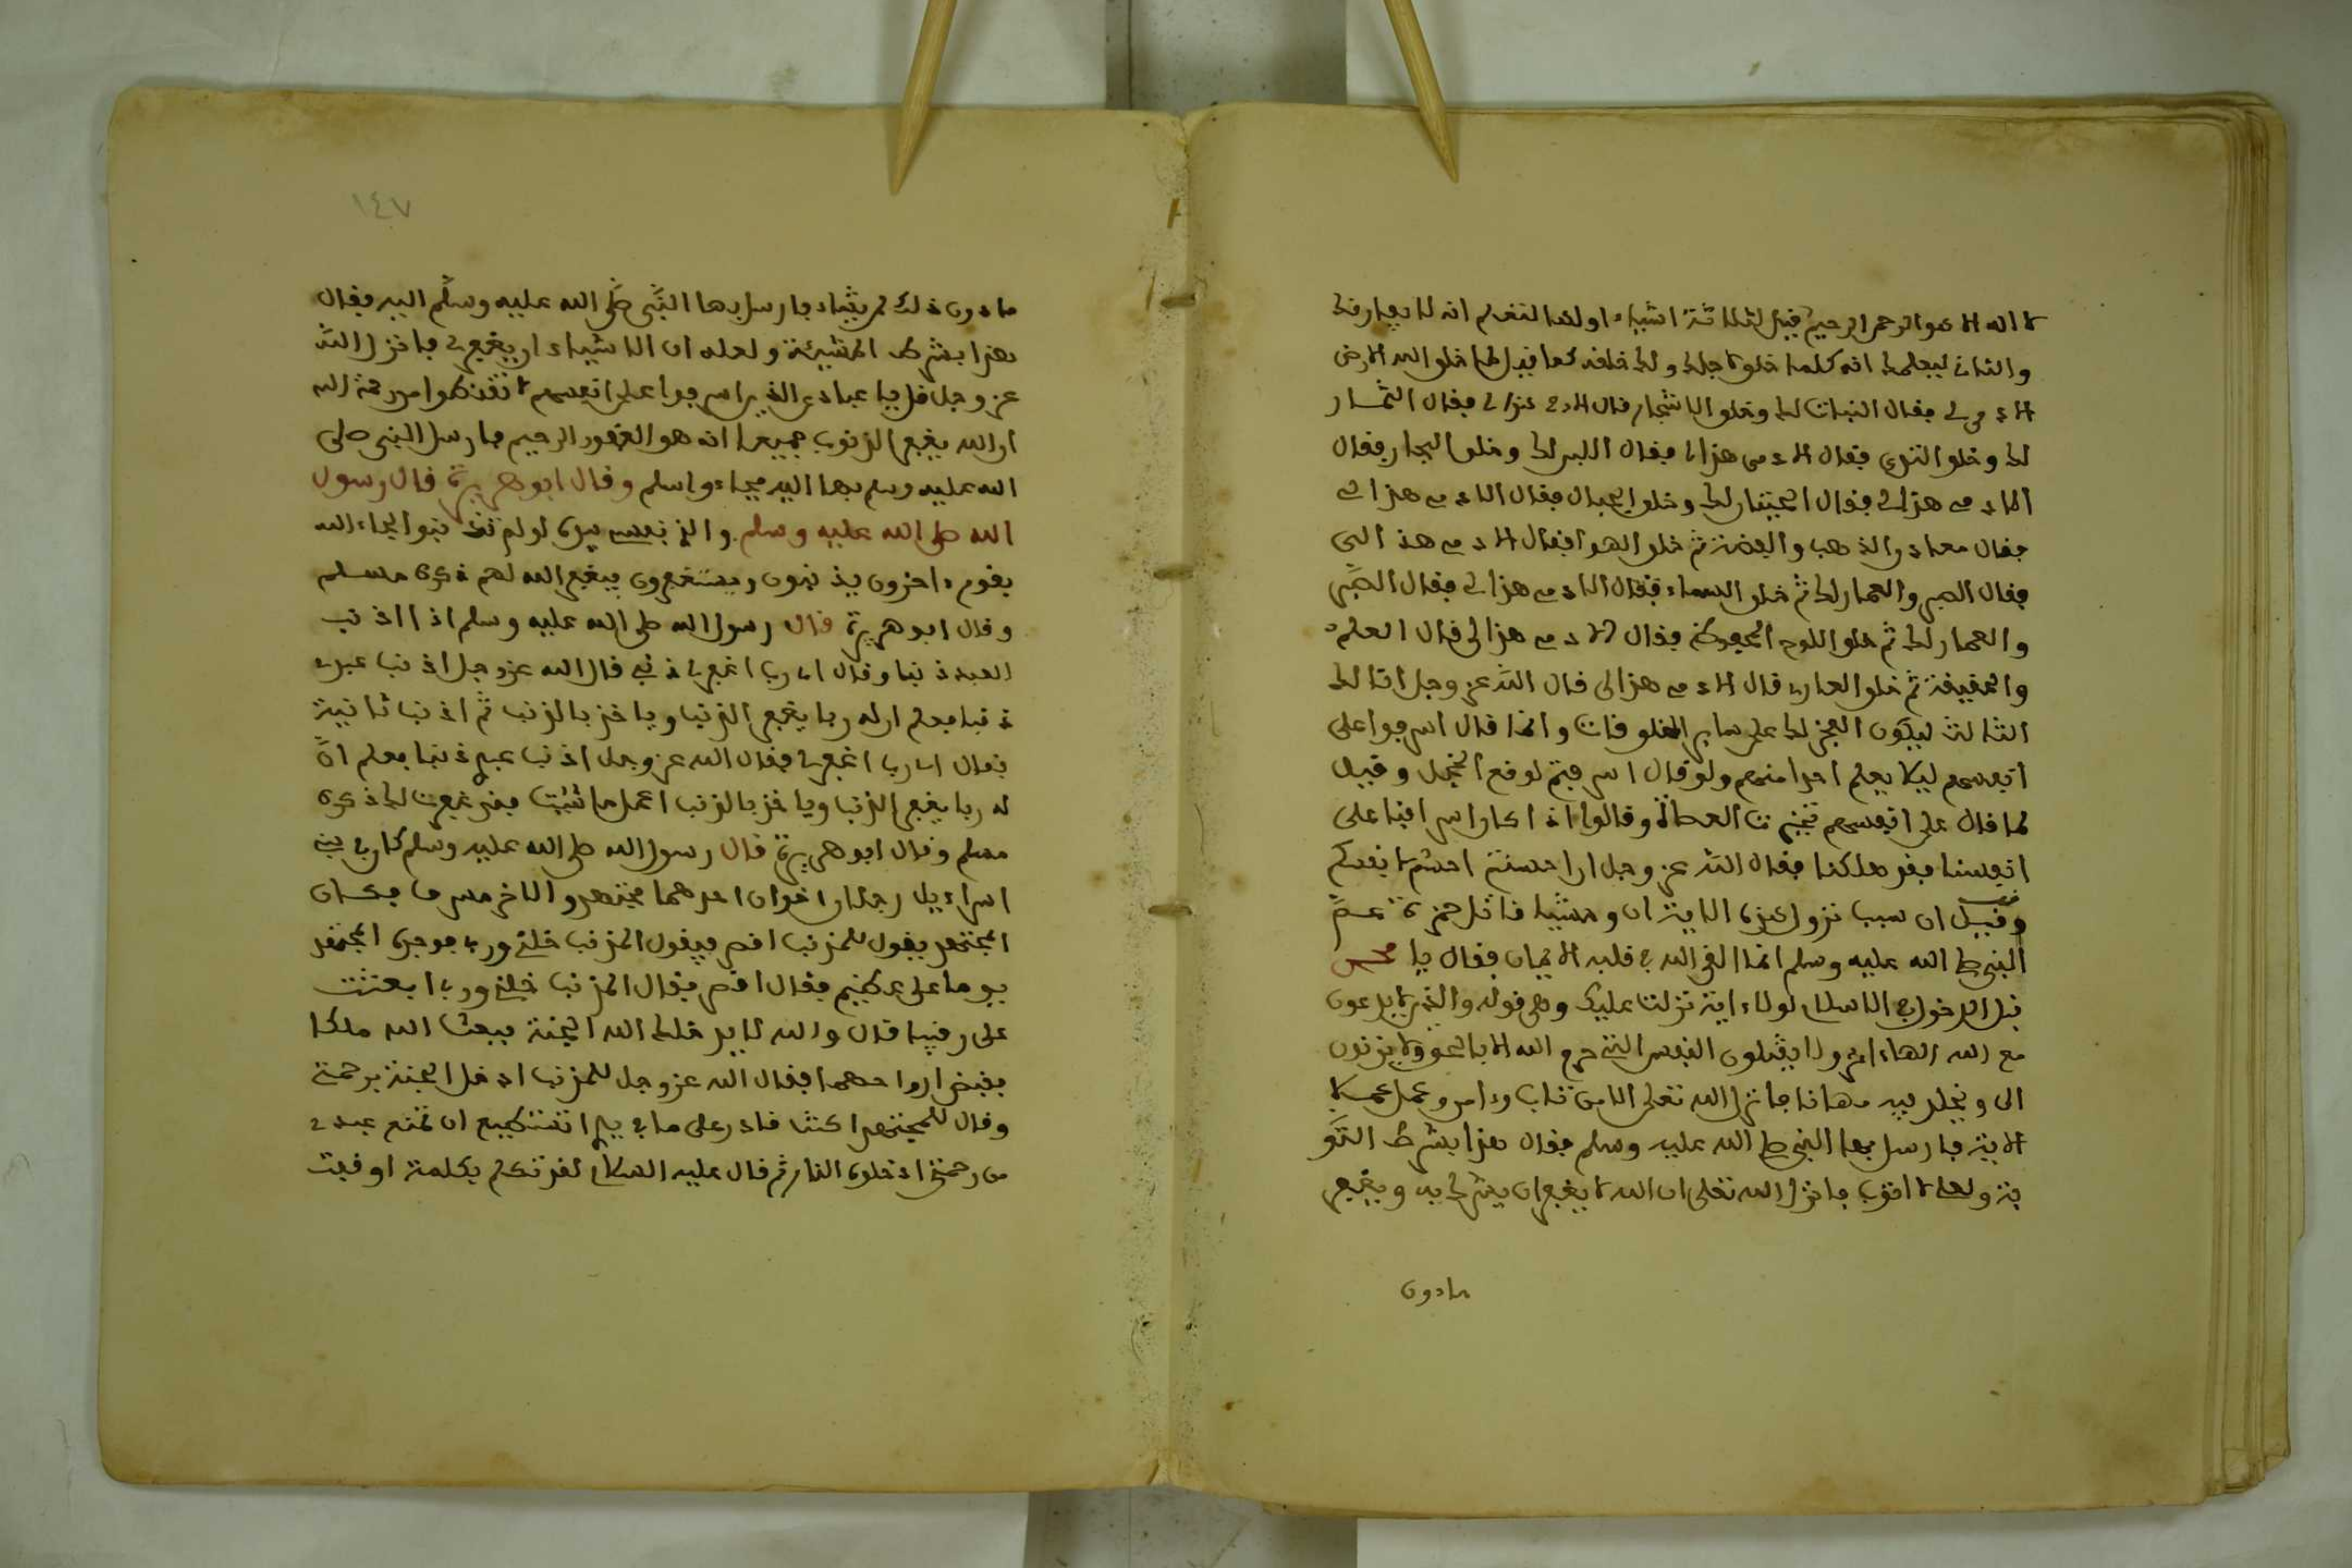 لا اله الا هو الرحمن الرحيم قيل لثلاثة اشياء اولها لتعلم انه لا يفارقك
والثاني ليعلمك انه كلما خلق لاجلك ولك خلقه كما قيل لما خلق الله الارض
فقال النبات لك وخلق الاشجار قال الادمي هذا لي فقال الثمار
لك وخلق الثرى فقال الادمي هذا لي فقال اللبر لك وخلق البحار فقال
الادمي هذا لي فقال الحيتان لك وخلق الجبال فقال الادمي هذا لي
فقال معادن الذهب والفضة ثم خلق الهوا فقال الادمي هذا لي
فقال الصبر والعمار لك ثم خلق السماء فقال الادمي هذا لي فقال
لك ثم خلق اللوح المحفوظ فقال الادمي هذا لي قال العلم
والحقيقة ثم خلق قال الادمي هذا لي قال الله عز وجل انا لك
الثالث ليكون العجز لك على ساير المخلوقات وانما قال اسرفوا على
انفسهم ليلا يعلم احدا منهم ولو قال اسرفتم لوقع الخجل وقيل
لما قال على انفسهم تحيرت العصاة وقالوا اذا كان اسرافنا على
انفسنا فقد هلكنا فقال الله عز وجل ان احسنتم احسنتم لانفسكم
وقيل ان سبب نزول هذه الاية ان وحشيا قاتل حمزة عم
النبي صلى الله عليه وسلم لما القى الله في قلبه الايمان فقال يا محمد
قبل الدخول في الاسلام لولاء اية نزلت عليك وهي قوله والذين لا يدعون
مع الله الهاء اخر ولا يقتلون النفس التي حرم الله الا بالحق ولا يزنون
الى ويخلد فيه مهانا فانزل الله تعلى الا من تاب وءامن وعمل عملا
الاية فارسل بها النبي صلى الله عليه وسلم فقال هذا بشرط التو
بة ولعله لا اتوب فانزل الله تعلى ان الله لا يغفر ان يشرك به ويغفر
مادون
١٤٧
مادون ذلك لمن يشاء فارسل بها النبي صلى الله عليه وسلم اليه فقال
هذا بشرط المشيئة ولعله ان لا يشاء ان يغفر لي فانزل الله
عز وجل قل يا عبادي الذين اسرفوا على انفسهم لا تقنطوا من رحمة الله
ان الله يغفر الذنوب جميعا انه هو الغفور الرحيم فارسل النبي صلى
الله عليه وسلم بها اليه فجاء واسلم وقال ابو هريرة قال رسول
الله صلى الله عليه وسلم والذي نفسي بيده لو لم تذنبوا لجاء الله
بقوم ءاخرون يذنبون ويستغفرون فيغفر الله لهم ذكره مسلم
وقال ابو هريرة قال رسول الله صلى الله عليه وسلم اذا اذنب
العبد ذنبا وقال اي رب اغفر لي ذنبي قال الله عز وجل اذنب عبدي
ذنبا فعلم ان له ربا يغفر الذنب وياخذ بالذنب ثم اذنب ثانية
فقال اي رب اغفر لي فقال الله عز وجل اذنب عبدي ذنبا فعلم ان
له ربا يغفر الذنب وياخذ بالذنب اعمل ما شيت فقد غفرت لك ذكره
مسلم وقال ابو هريرة قال رسول الله صلى الله عليه وسلم كان في بني
اسراءيل رجلان اخوان احدهما مجتهد والاخر مسرف فكان
المجتهد يقول للمذنب اقصر فيقول المذنب خلني وربي فوجده المجتهد
يوما على عظيم فقال اقصر فقال المذنب خلني وربي ابعثت
على رقيبا قال والله لا يدخلك الله الجنة فبعث الله ملكا
فقبض ارواحهما فقال الله عز وجل للمذنب ادخل الجنة برحمتي
وقال للمجتهد اكنت قادر على ما في يدي اتستطيع ان تمنع عبدي
من رحمتي ادخلوه النار ثم قال عليه السلام لقد تكلم بكلمة اوقفت